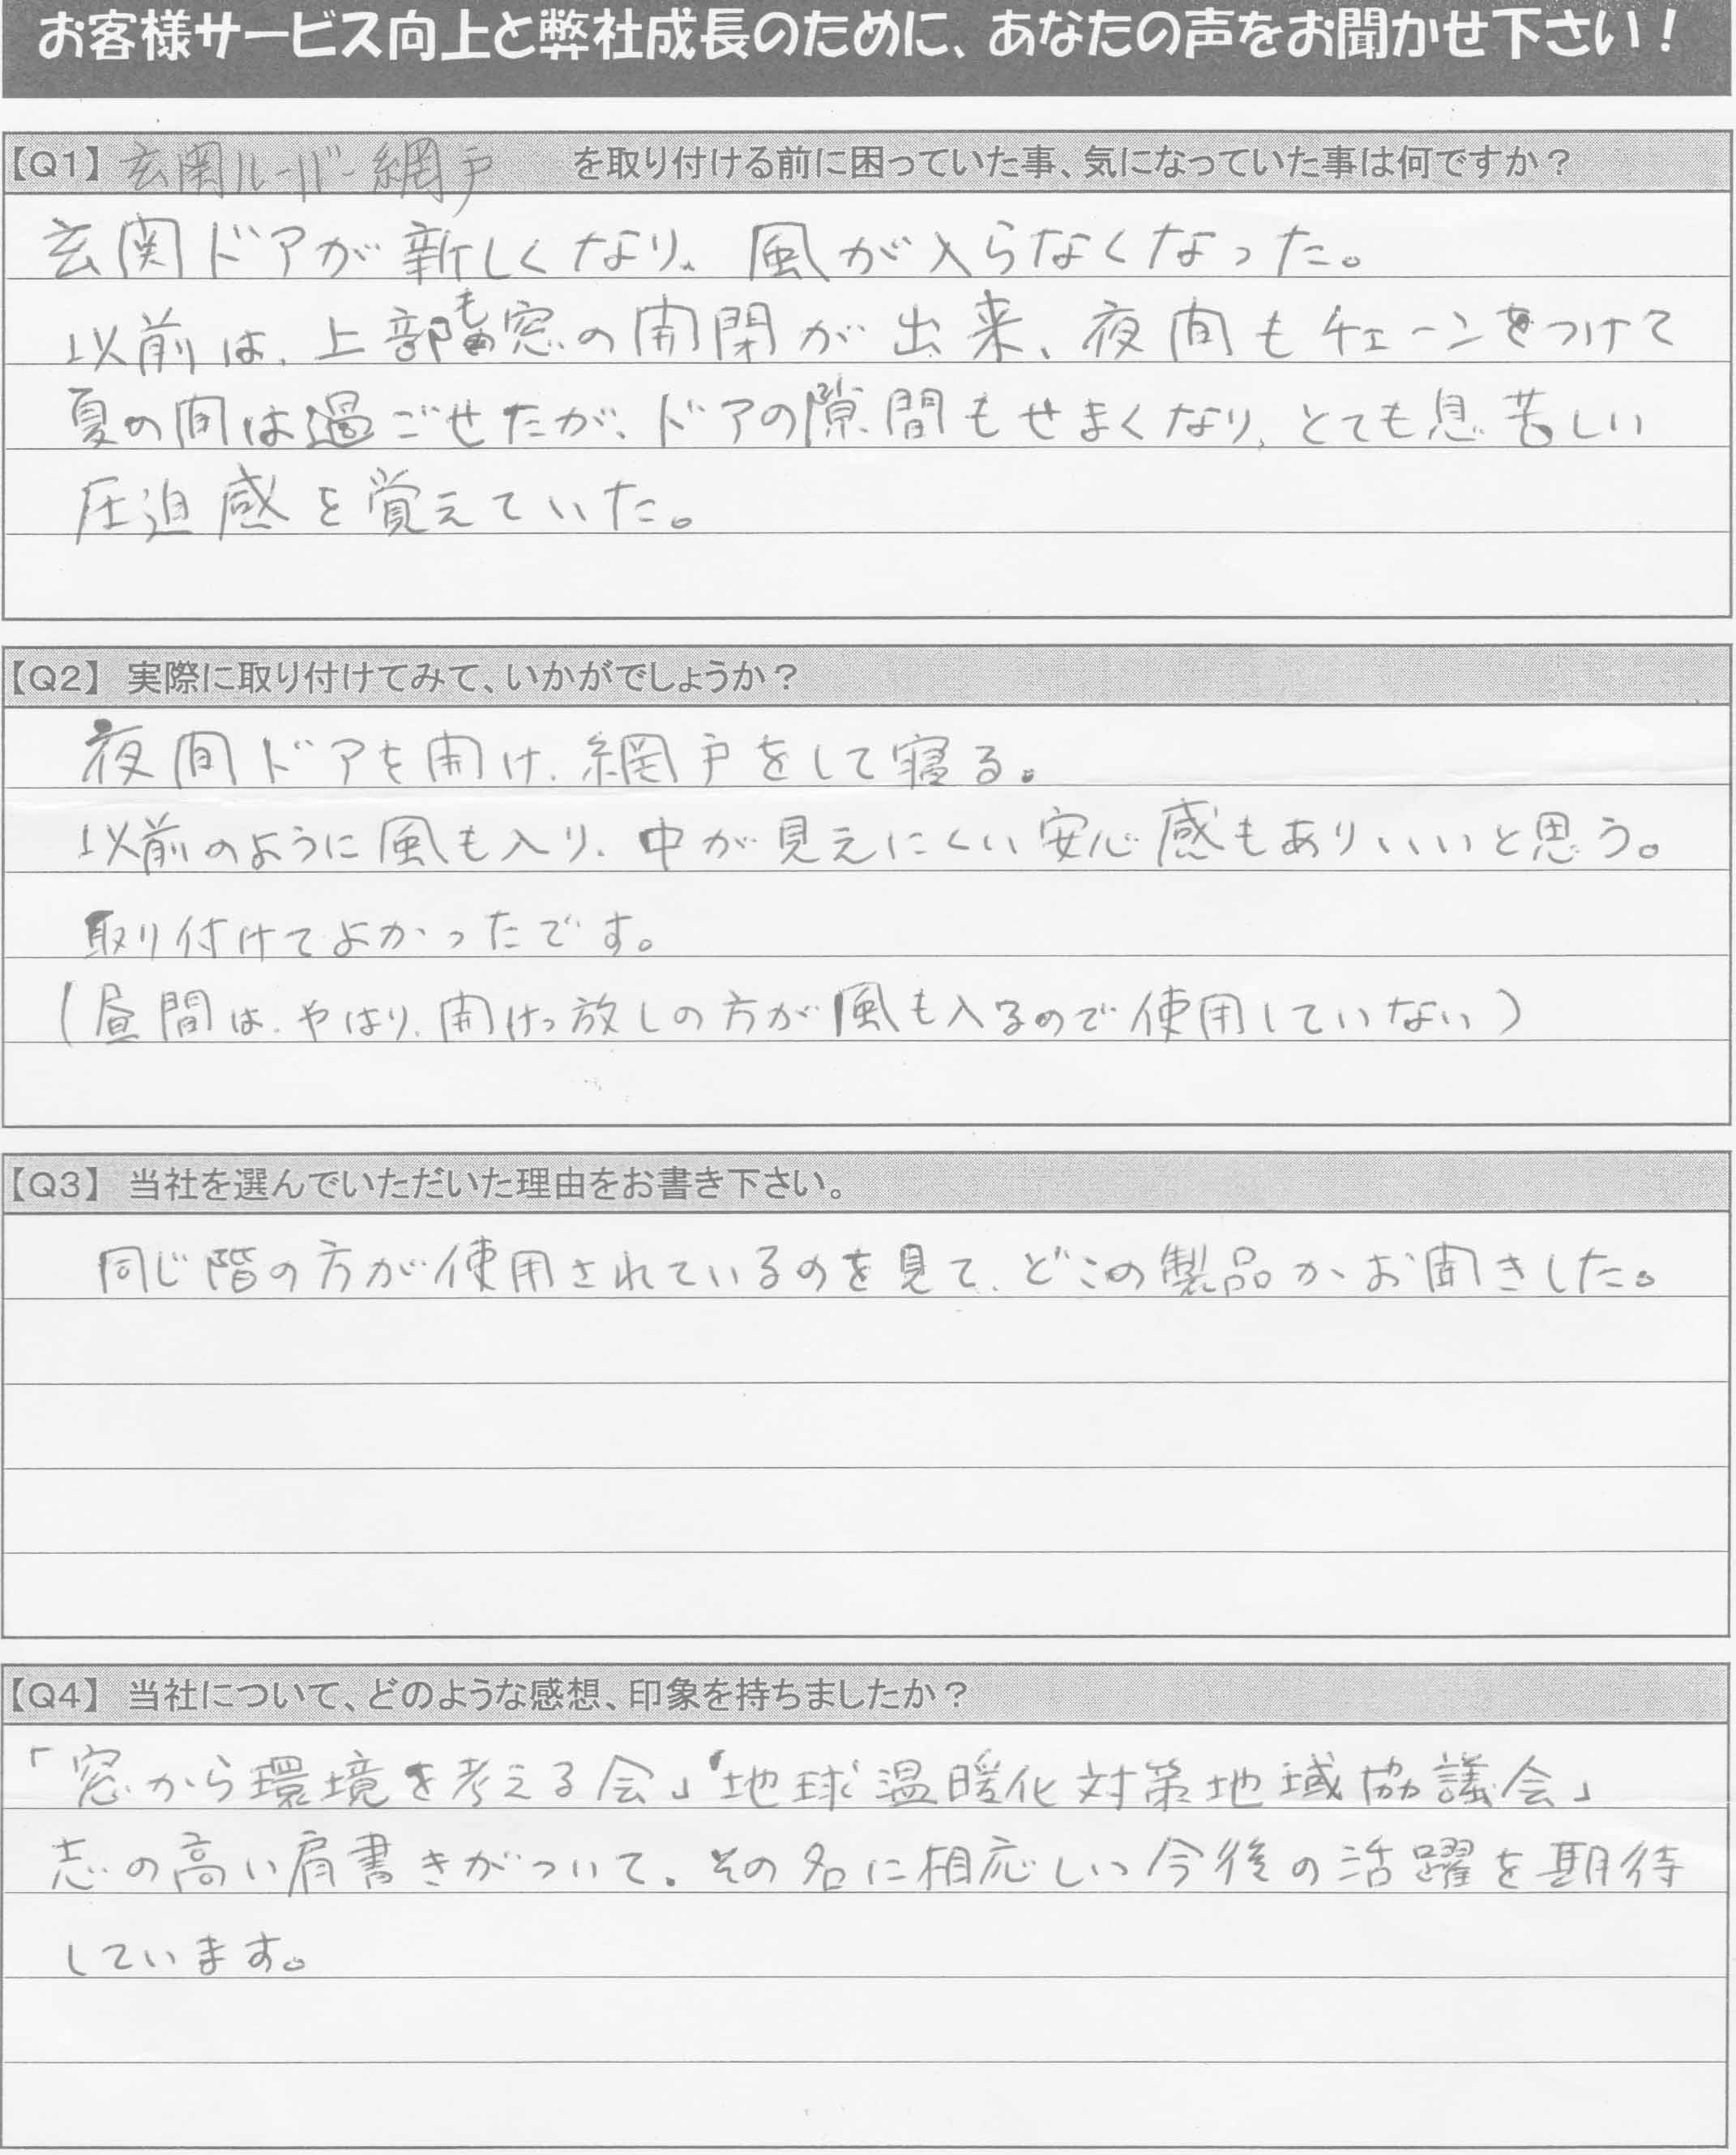 お客様サービス向上と弊社成長のために、あなたの声をお聞かせ下さい！
【Q1】玄関ルーバー網戸 を取り付ける前に困っていた事、気になっていた事は何ですか？
玄関ドアが新しくなり、風が入らなくなった。
以前は、上部も窓の開閉が出来、夜間もチェーンをつけて
夏の間は過ごせたが、ドアの隙間もせまくなり、とても息苦しい
圧迫感を覚えていた。
【Q2】実際に取り付けてみて、いかがでしょうか？
夜間ドアを開け、網戸をして寝る。
以前のように風も入り、中が見えにくい安心感もありいいと思う。
取り付けてよかったです。
(昼間は、やはり、開けっ放しの方が風も入るので使用していない)
【Q3】当社を選んでいただいた理由をお書き下さい。
同じ階の方が使用されているのを見て、どこの製品かお聞きした。
【Q4】当社について、どのような感想、印象を持ちましたか？
「窓から環境を考える会」「地球温暖化対策地域協議会」
志の高い肩書きがついて、その名に相応しい今後の活躍を期待
しています。